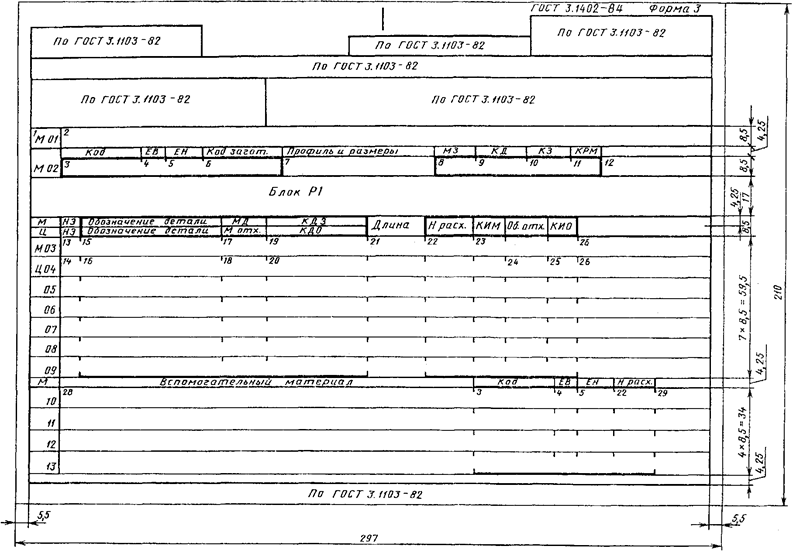 ГОСТ 3.1402-84 Форма 3
По ГОСТ 3.1103-82
По ГОСТ 3.1103-82
По ГОСТ 3.1103-82
По ГОСТ 3.1103-82
По ГОСТ 3.1103-82 По ГОСТ 3.1103-82
1 М 01 2 8,5 4,25
Код ЕВ ЕН Код загот. Профиль и размеры МЗ КД КЗ КРМ
М 02 3 4 5 6 7 8 9 10 11 12 8,5
Блок Р1 4,25 17
М НЭ Обозначение детали МД КДЗ Длина Н расх. КИМ Об.отх. КИО 8,5
Ц НЭ Обозначение детали М отх. КДО
М 03 13 15 17 19 21 22 23 26
Ц 04 14 16 18 20 24 25 26
05
06 7×8,5=59,5 210
07
08
09 4,25
М Вспомогательный материал Код ЕВ ЕН Н расх.
10 28 3 4 5 22 29
11 4×8,5=34
12
13 4,25
По ГОСТ 3.1103-82
5,5 5,5
297